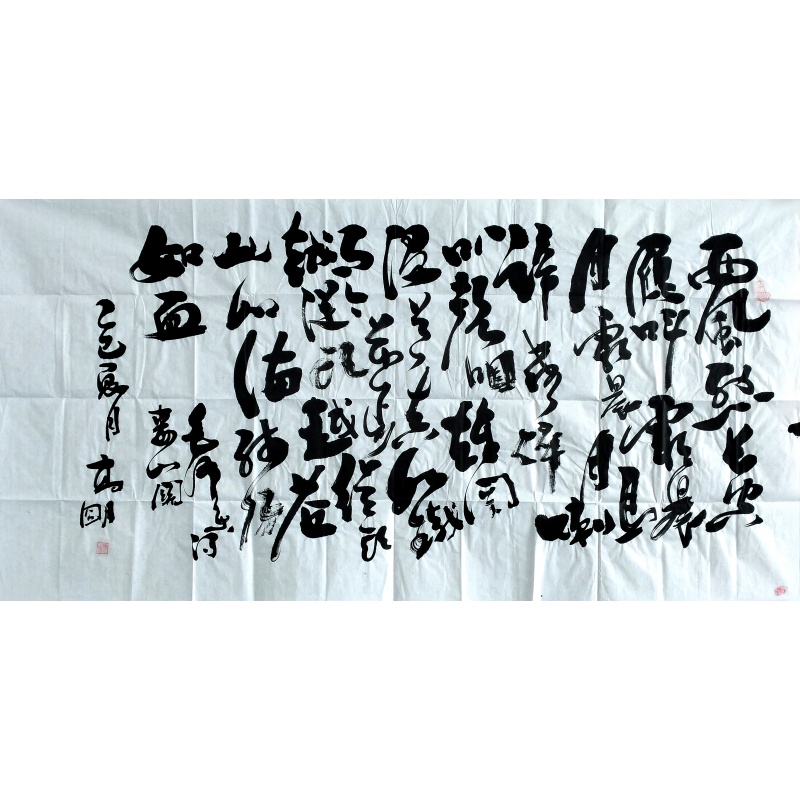 西风烈长空
雁叫霜晨
月霜晨月马
蹄声碎喇
叭声咽雄关
漫道真如铁
而今迈步从头
越从头越苍
山如海残阳
如血
毛泽东词
娄山关
乙巳夏月高明